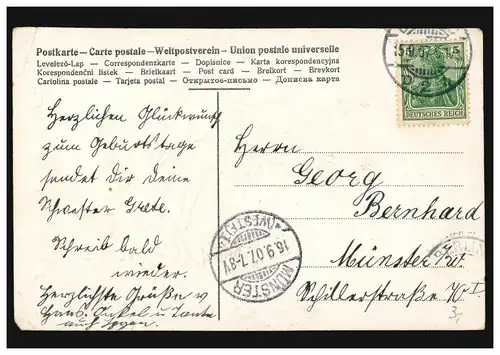 Postkarte – Carte postale – Weltpostverein – Union postale universelle
Levelező-Lap — Correspondenzkarte — Dopisnice — Karta korespondencyjna
Korespondenční listek — Briefkaart — Post card — Brefkort — Brevkort
Cartolina postale — Tarjeta postal — Открытое-письмо — Дописна карта
DEUTSCHES REICH
Herzlichen Glückwunsch
zum Geburtstage
sendet Dir Deine
Schwester Grete.
Schreib bald
wieder.
Herzlichste Grüße v
Hans. Onkel u Tante
auch
Herrn
Georg
Bernhard
Münster i/w.
Schillerstraße
MÜNSTER
(WESTF.)
16.9.07.7-8V
3,-